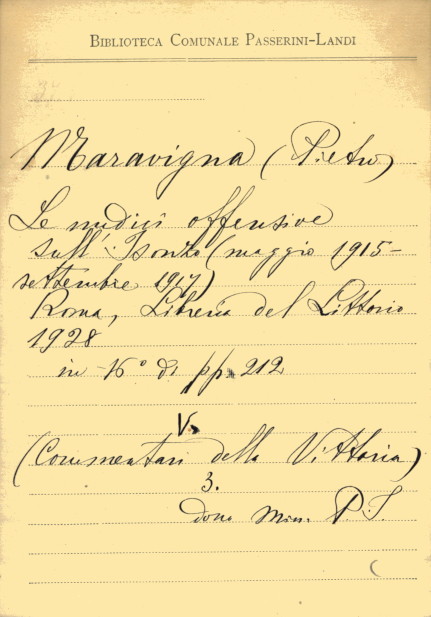 BIBLIOTECA COMUNALE PASSERINI-LANDI
Maravigna (Pietro)
Le undici offensive
sull'Isonzo (maggio 1915-
settembre 1917)
Roma, Libreria del Littorio
1928
in 16° di pp. 212
V.
(Commentari della Vittoria)
3.
dono Min. P. I.